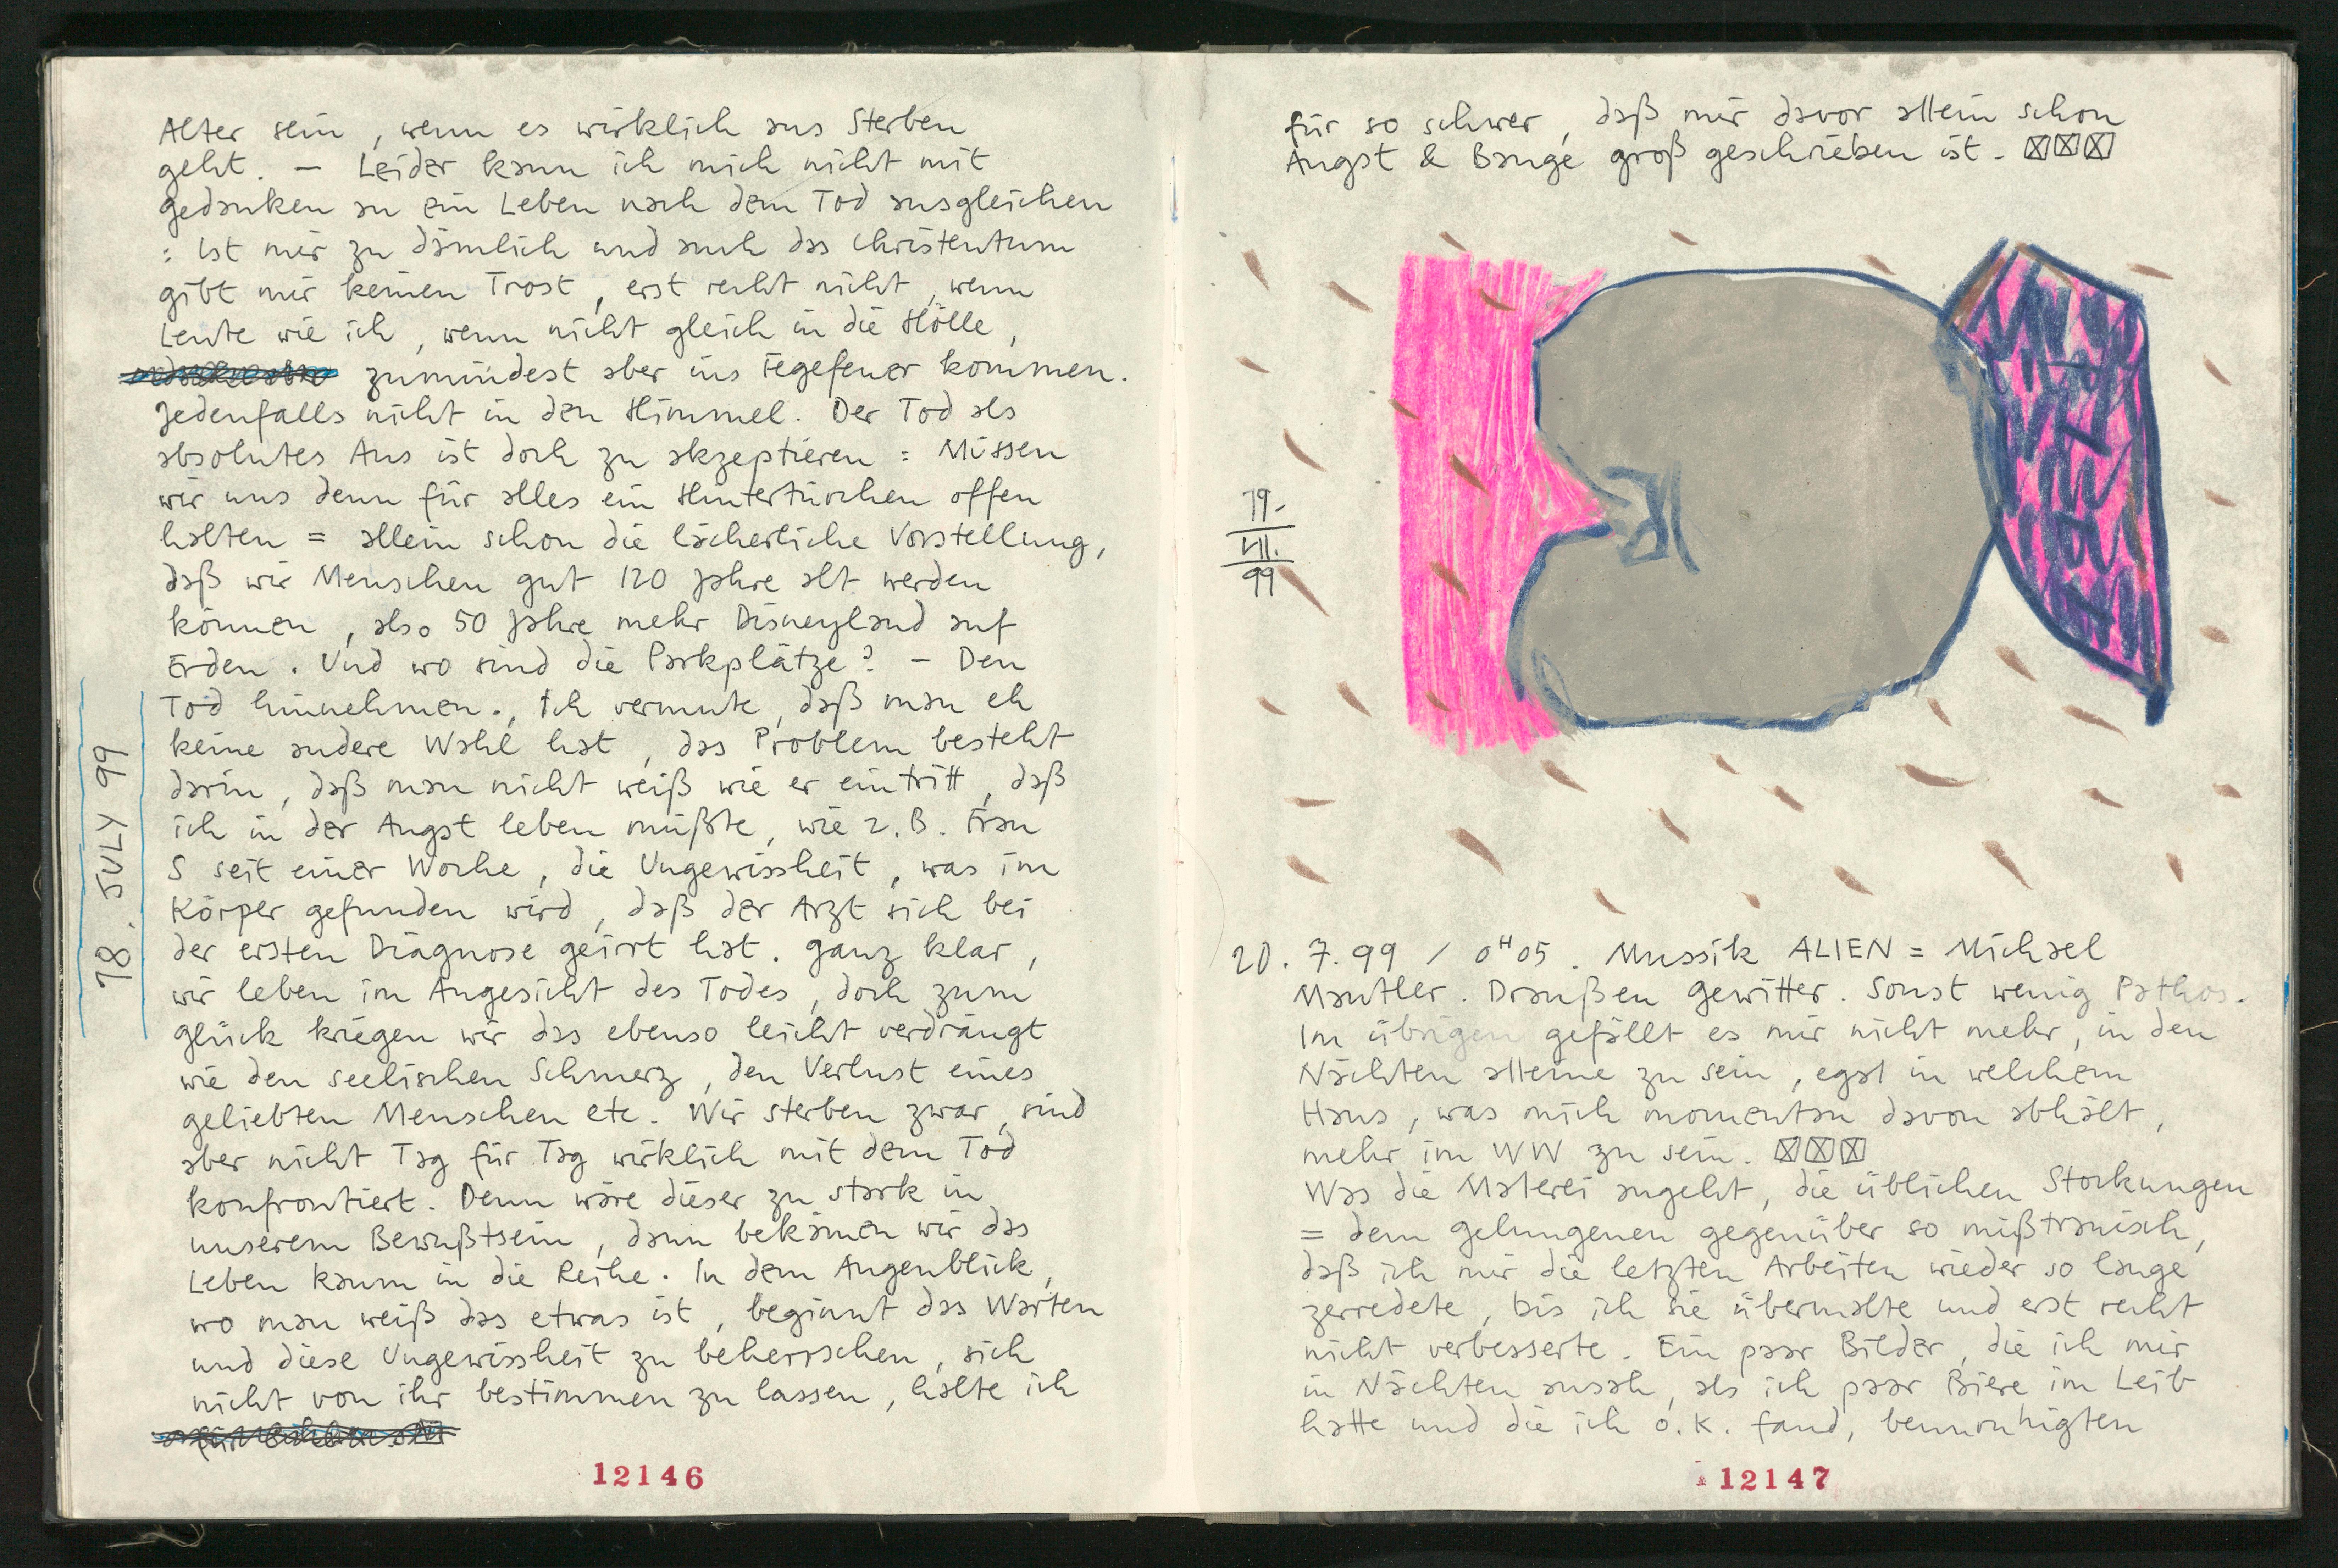 Alter sein, wenn es wirklich ans Sterben
geht. – Leider kann ich mich nicht mit
gedanken an ein Leben nach dem Tod ausgleichen
: ist mir zu dämlich und auch das Christentum
gibt mir keinen Trost, erst recht nicht, wenn
Leute wie ich, wenn nicht gleich in die Hölle,
zumindest aber ins Fegefeuer kommen.
Jedenfalls nicht in den Himmel. Der Tod als
absolutes Aus ist doch zu akzeptieren: Müssen
wir uns denn für alles ein Hintertürchen offen
halten = allein schon die lächerliche Vorstellung,
daß wir Menschen gut 120 Jahre alt werden
können, also 50 Jahre mehr Disneyland auf
Erden. Und wo sind die Parkplätze? – Den
Tod hinnehmen., Ich vermute, daß man eh
keine andere Wahl hat, das Problem besteht
darin, daß man nicht weiß wie er eintritt, daß
ich in der Angst leben müßte, wie z.B. Frau
S seit einer Woche, die Ungewissheit, was im
Körper gefunden wird, daß der Arzt sich bei
der ersten Diagnose geirrt hat. ganz klar,
wir leben im Angesicht des Todes, doch zum
glück kriegen wir das ebenso leicht verdrängt
wie den seelischen Schmerz, den Verlust eines
geliebten Menschen etc. Wir sterben zwar, sind
aber nicht Tag für Tag wirklich mit dem Tod
konfrontiert. Denn wäre dieser zu stark in
unserem Bewußtsein, dann bekämen wir das
Leben kaum in die Reihe. In dem Augenblick,
wo man weiß das etwas ist, beginnt das Warten
und diese Ungewissheit zu beherrschen, sich
nicht von ihr bestimmen zu lassen, halte ich
18. JULY 99
12146
für so schwer, daß mir davor allein schon
Angst & Bange groß geschrieben ist.
19.
VII.
99
20. 7. 99 / 0H05. Mussik ALIEN = Michael
Mantler. Draußen gewitter. Sonst wenig Pathos.
Im übrigen gefällt es mir nicht mehr, in den
Nächten alleine zu sein, egal in welchem
Haus, was mich momentan davon abhält,
mehr im WW zu sein.
Was die Malerei angeht, die üblichen Stockungen
= dem gelungenen gegenüber so mißtrauisch,
daß ich mir die letzten Arbeiten wieder so lange
zerredete, bis ich sie übermalte und erst recht
nicht verbesserte. Ein paar Bilder, die ich mir
in Nächten ansah, als ich paar Biere im Leib
hatte und die ich o.k. fand, beunruhigten
12147